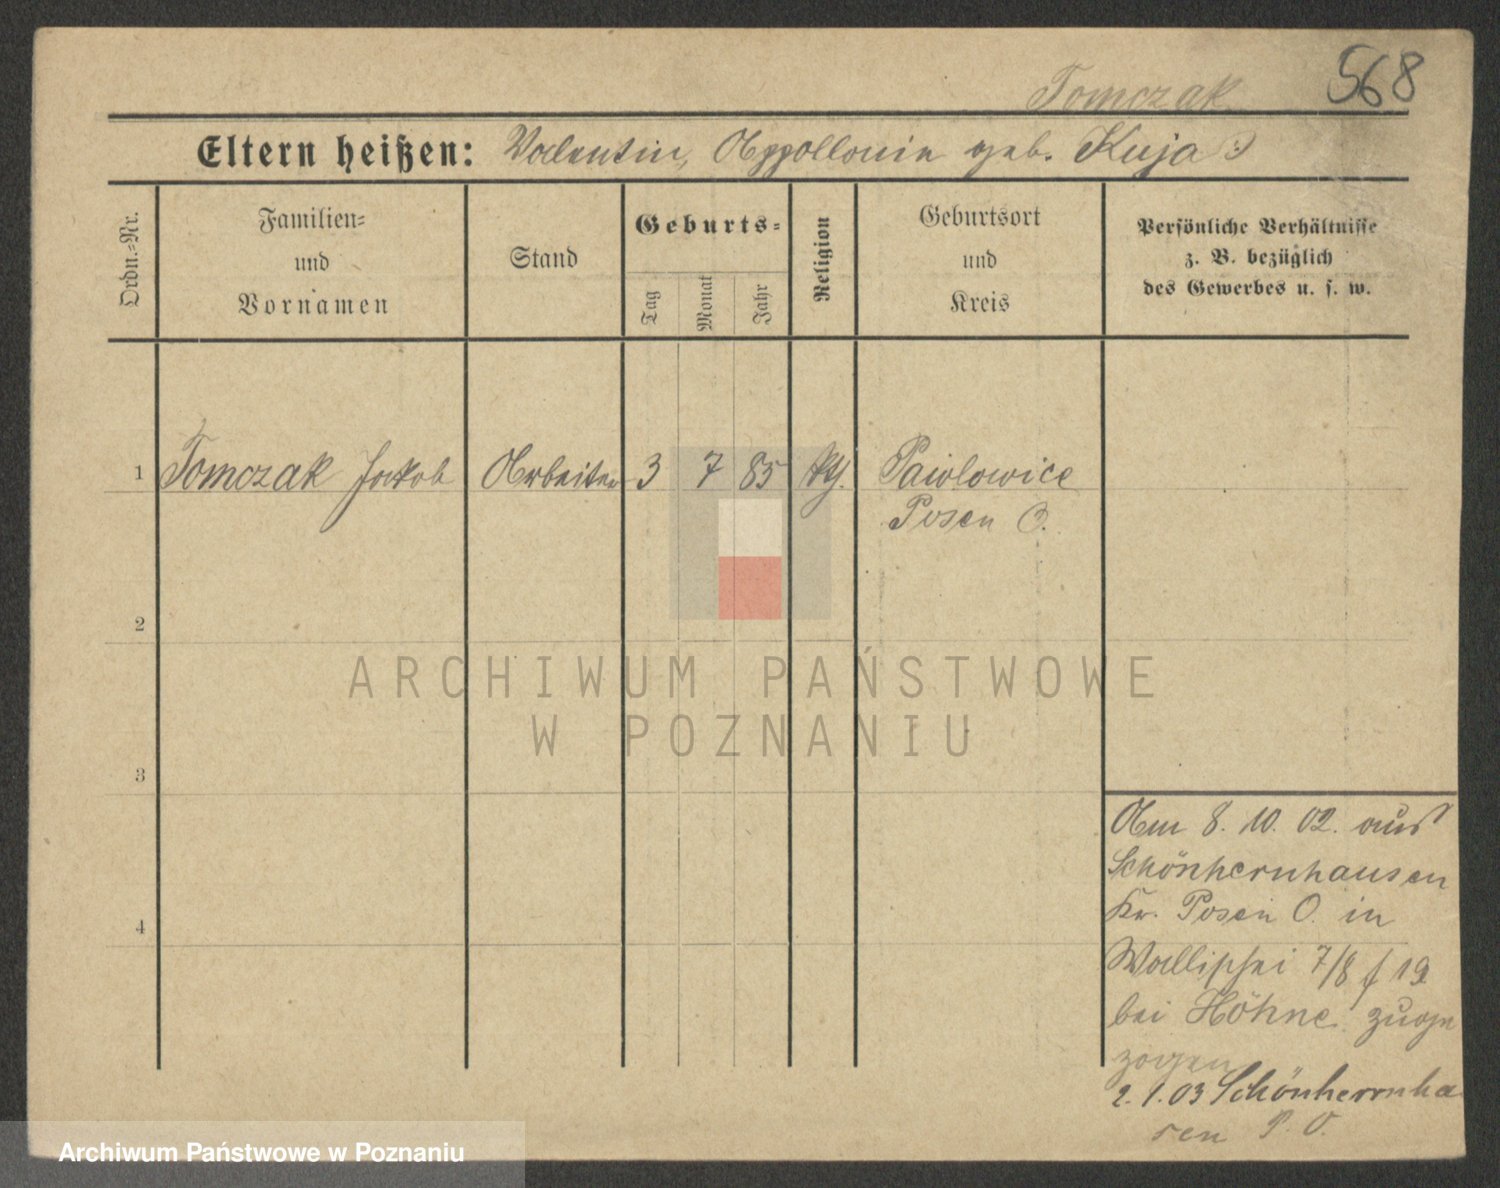 568
Tomczak
Eltern heißen: Valentin, Appollonia geb. Kuja
Ordn.-Nr.
Familien-
und
Vornamen
Stand
Geburts-
Tag
Monat
Jahr
Religion
Geburtsort
und
Kreis
Persönliche Verhältnisse
z. B. bezüglich
des Gewerbes u. s. w.
1 Tomczak Jakob Arbeiter 3 7 85 kth. Pawlowice
Posen O.
2
3
4
Am 8. 10. 02. aus
Schönhernhausen
Kr. Posen O. in
Wallischei 7/8 f 19
bei Höhne zuge
zogen
2. 1. 03 Schönherrnha
sen P. O.
ARCHIWUM PAŃSTWOWE
W POZNANIU
Archiwum Państwowe w Poznaniu